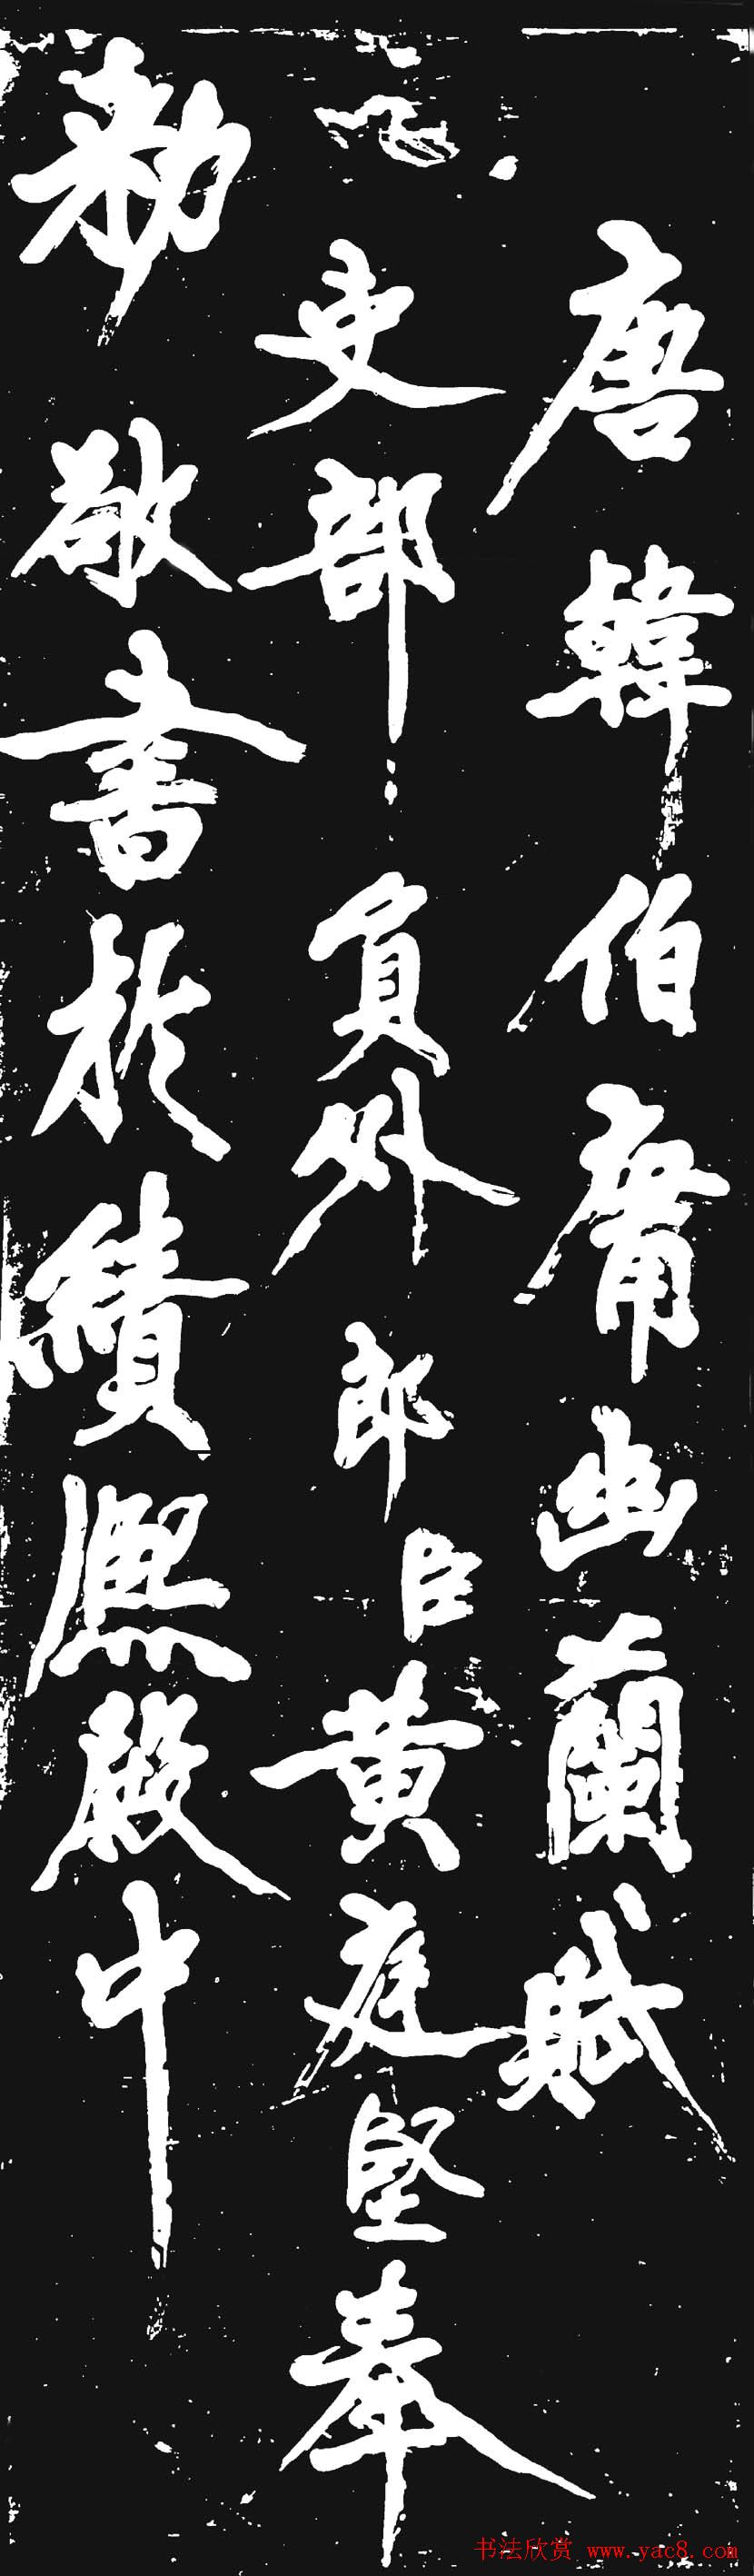 唐韓伯庸幽蘭賦
吏部員外郎臣黄庭堅奉
勅敬書於績熙殿中
书法欣赏 www.yac8.com